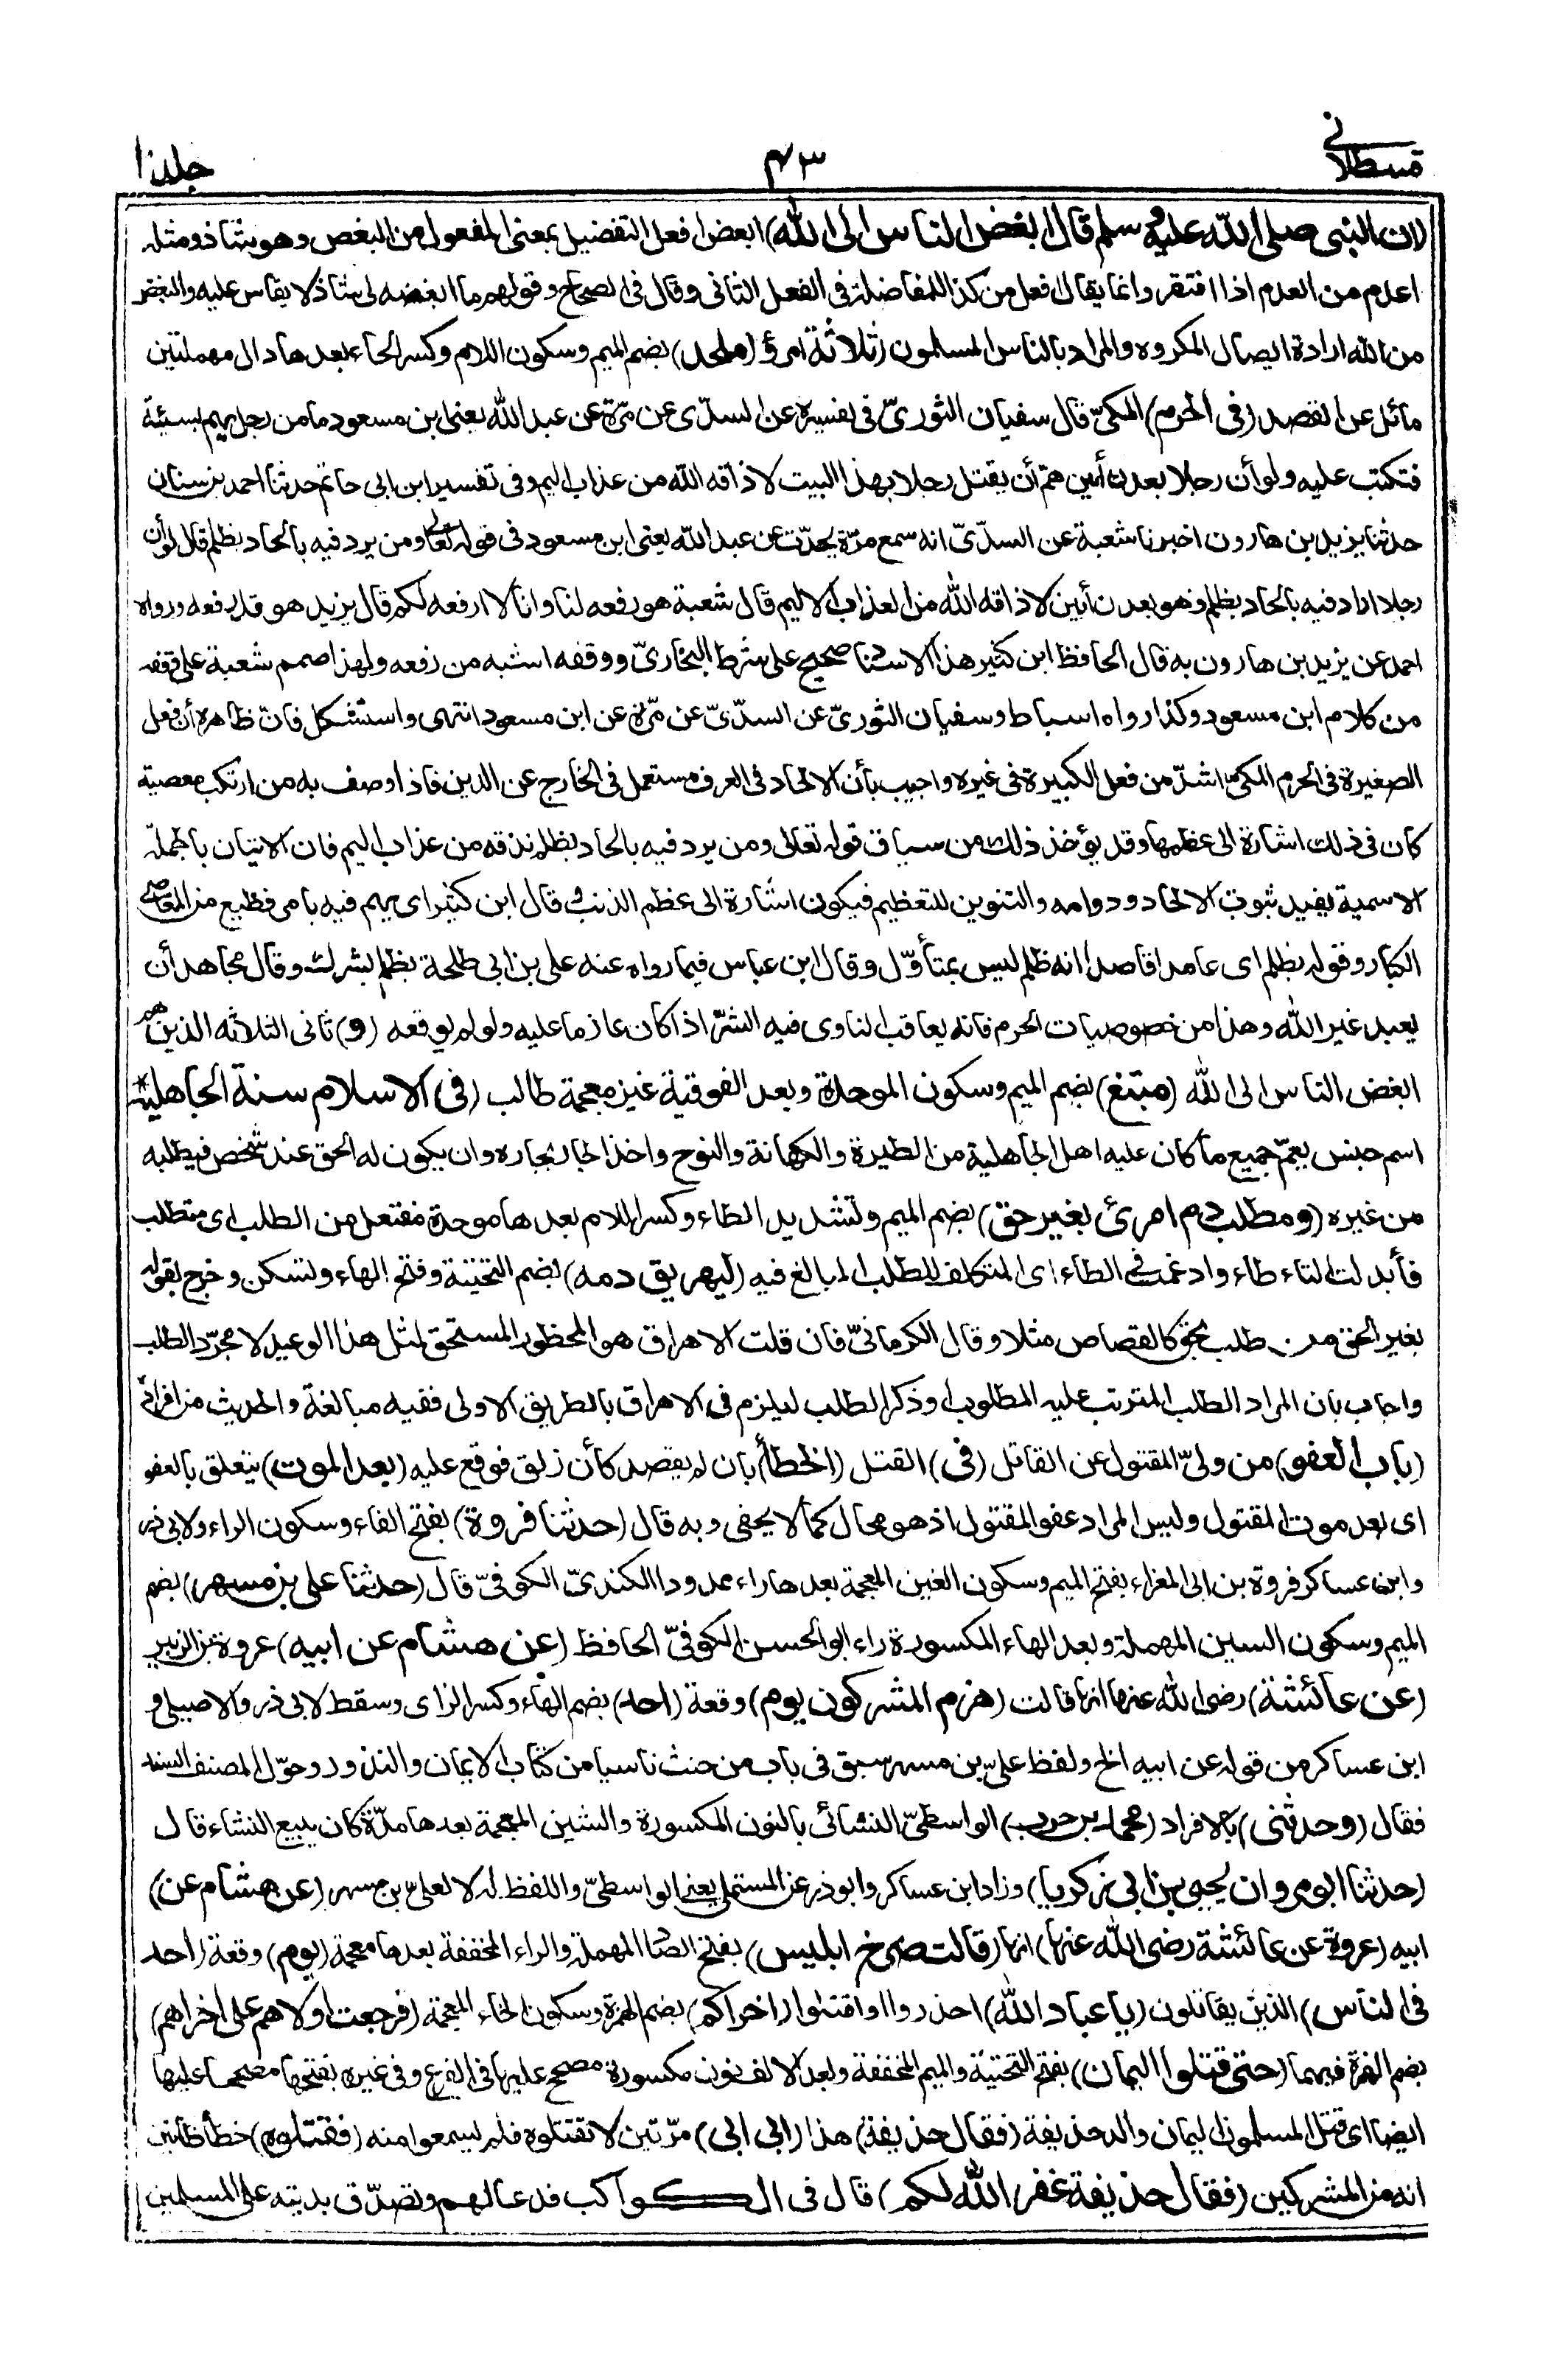 قسطلانى
٤٣
جلد ١٠
(ان النبى صلى الله عليه وسلم قال ابغض الناس الى الله) ابغض افعل التفضيل بمعنى المفعول من البغض وهو شاذ ومثله
اعدم من العدم اذا افتقر وانما يقال افعل من كذا للمفاضلة فى الفعل الثانى وقال فى الصحاح وقولهم ما ابغضه لى شاذ لا يقاس عليه والبغض
من الله ارادة ايصال المكروه والمراد بالناس المسلمون (ثلاثة امرؤ (ملحد) بضم الميم وسكون اللام وكسر الحاء بعدها دال مهملتين
مائل عن القصد (فى الحرم) المكىّ قال سفيان الثورىّ فى تفسيره عن السدّى عن مرّة عن عبد الله يعنى ابن مسعود ما من رجل يهم بسيئة
فتكتب عليه ولو أن رجلا بعدن أبين همّ أن يقتل رجلا بهذا البيت لاذاقه الله من عذاب اليم وفى تفسير ابن ابى حاتم حدثنا احمد بن سنان
حدثنا يزيد بن هارون اخبرنا شعبة عن السدّىّ انه سمع مرّة يحدّث عن عبد الله يعنى ابن مسعود فى قوله تعالى ومن يرد فيه بالحاد بظلم قال لو أن
رجلا اراد فيه بالحاد بظلم وهو بعدن أبين لاذاقه الله من العذاب الاليم قال شعبة هو رفعه لنا وانا لا ارفعه لكم قال يزيد هو قد رفعه ورواه
احمد عن يزيد بن هارون به قال الحافظ ابن كثير هذا الاسناد صحيح على شرط البخارىّ ووقفه اشبه من رفعه ولهذا صمم شعبة على وقفه
من كلام ابن مسعود وكذا رواه اسباط وسفيان الثورىّ عن السدّىّ عن مرّة عن ابن مسعود انتهى واستشكل فانّ ظاهره أن فعل
الصغيرة فى الحرم المكىّ اشدّ من فعل الكبيرة فى غيره واجيب بأن الالحاد فى العرف مستعمل فى الخارج عن الدين فاذا وصف به من ارتكب معصية
كان فى ذلك اشارة الى عظمها وقد يؤخذ ذلك من سياق قوله تعالى ومن يرد فيه بالحاد بظلم نذقه من عذاب اليم فان الاتيان بالجملة
الاسمية يفيد ثبوت الالحاد ودوامه والتنوين للتعظيم فيكون اشارة الى عظم الذنب وقال ابن كثير اى يهم فيه بامر فظيع من المعاصى
الكبار وقوله بظلم اى عامدا قاصدا انه ظلم ليس بمتأوّل وقال ابن عباس فيما رواه عنه على بن ابى طلحة بظلم بشرك وقال مجاهد أن
يعبد غير الله وهذا من خصوصيات الحرم فانه يعاقب الناوى فيه الشرّ اذا كان عازما عليه ولو لم يوقعه (و) ثانى الثلاثه الذين هم
ابغض الناس الى الله (مبتغ) بضم الميم وسكون الموحدة وبعد الفوقية غين معجمة طالب (فى الاسلام سنة الجاهلية*
اسم جنس يعمّ جميع ما كان عليه اهل الجاهلية من الطيرة والكهانة والنوح واخذ الجار بجاره وان يكون له الحق عند شخص فيطلبه
من غيره (ومطلب دم امرئ بغير حق) بضم الميم وتشديد الطاء وكسر اللام بعدها موحدة مفتعل من الطلب اى متطلب
فأبدلت التاء طاء وادغمت فى الطاء اى المتكلف للطلب المبالغ فيه (ليهريق دمه) بضم التحتية وفتح الهاء وتسكن وخرج بقوله
بغير الحق من طلب بحق كالقصاص مثلا وقال الكرمانىّ فان قلت الاهراق هو المحظور المستحق لمثل هذا الوعيد لا مجرّد الطلب
واجاب بان المراد الطلب المترتب عليه المطلوب او ذكر الطلب ليلزم فى الاهراق بالطريق الاولى ففيه مبالغة والحديث من افراده
(باب العفو) من ولىّ المقتول عن القاتل (فى) القتل (الخطأ) بان لم يقصد كأن زلق فوقع عليه (بعد الموت) يتعلق بالعفو
اى بعد موت المقتول وليس المراد عفو المقتول اذ هو محال كما لا يخفى وبه قال (حدثنا فروة) بفتح الفاء وسكون الراء ولابى ذر
وابن عساكر فروة بن ابى المغراء بفتح الميم وسكون الغين المعجمة بعدها راء ممدودا الكندىّ الكوفىّ قال (حدثنا على بن مسهر) بضم
الميم وسكون السين المهملة وبعد الهاء المكسورة راء ابو الحسن الكوفىّ الحافظ (عن هشام عن ابيه) عروة بن الزبير
(عن عائشة) رضى الله عنها انها قالت (هزم المشركون يوم) وقعة (احد) بضم الهاء وكسر الزاى وسقط لابى ذر والاصيلى و
ابن عساكر من قوله عن ابيه الخ ولفظ علىّ بن مسهر سبق فى باب من حنث ناسيا من كتاب الايمان والنذور وحوّل المصنف السند
فقال (وحدثنى) بالافراد (محمد بن حرب) الواسطىّ النشائى بالنون المكسورة والشين المعجمة بعدها مدّة كان يبيع النشاء قال
(حدثنا ابو مروان يحيى بن ابى زكريا) وزاد ابن عساكر وابو ذر عن المستملى يعنى الواسطىّ واللفظ له لا لعلىّ بن مسهر (عن هشام عن)
ابيه (عروة عن عائشة رضى الله عنها) انها (قالت صرخ ابليس) بفتح الصاد المهملة والراء المخففة بعدها معجمة (يوم) وقعة (احد
فى الناس) الذين يقاتلون (يا عباد الله) احذروا او اقتلوا (اخراكم) بضم الهمزة وسكون الخاء المعجمة (فرجعت اولاهم على اخراهم)
بضم الهمزة فيهما (حتى قتلوا اليمان) بفتح التحتية والميم المخففة وبعد الالف نون مكسورة مصحح عليها فى الفرع وفى غيره بفتحها مصححا عليها
ايضا اى قتل المسلمون اليمان والد حذيفة (فقال حذيفة) هذا (ابى ابى) مرّتين لا تقتلوه فلم يسمعوا منه (فقتلوه) خطأ ظانين
انه من المشركين (فقال حذيفة غفر الله لكم) قال فى الكواكب فدعا لهم وتصدّق بديته على المسلمين